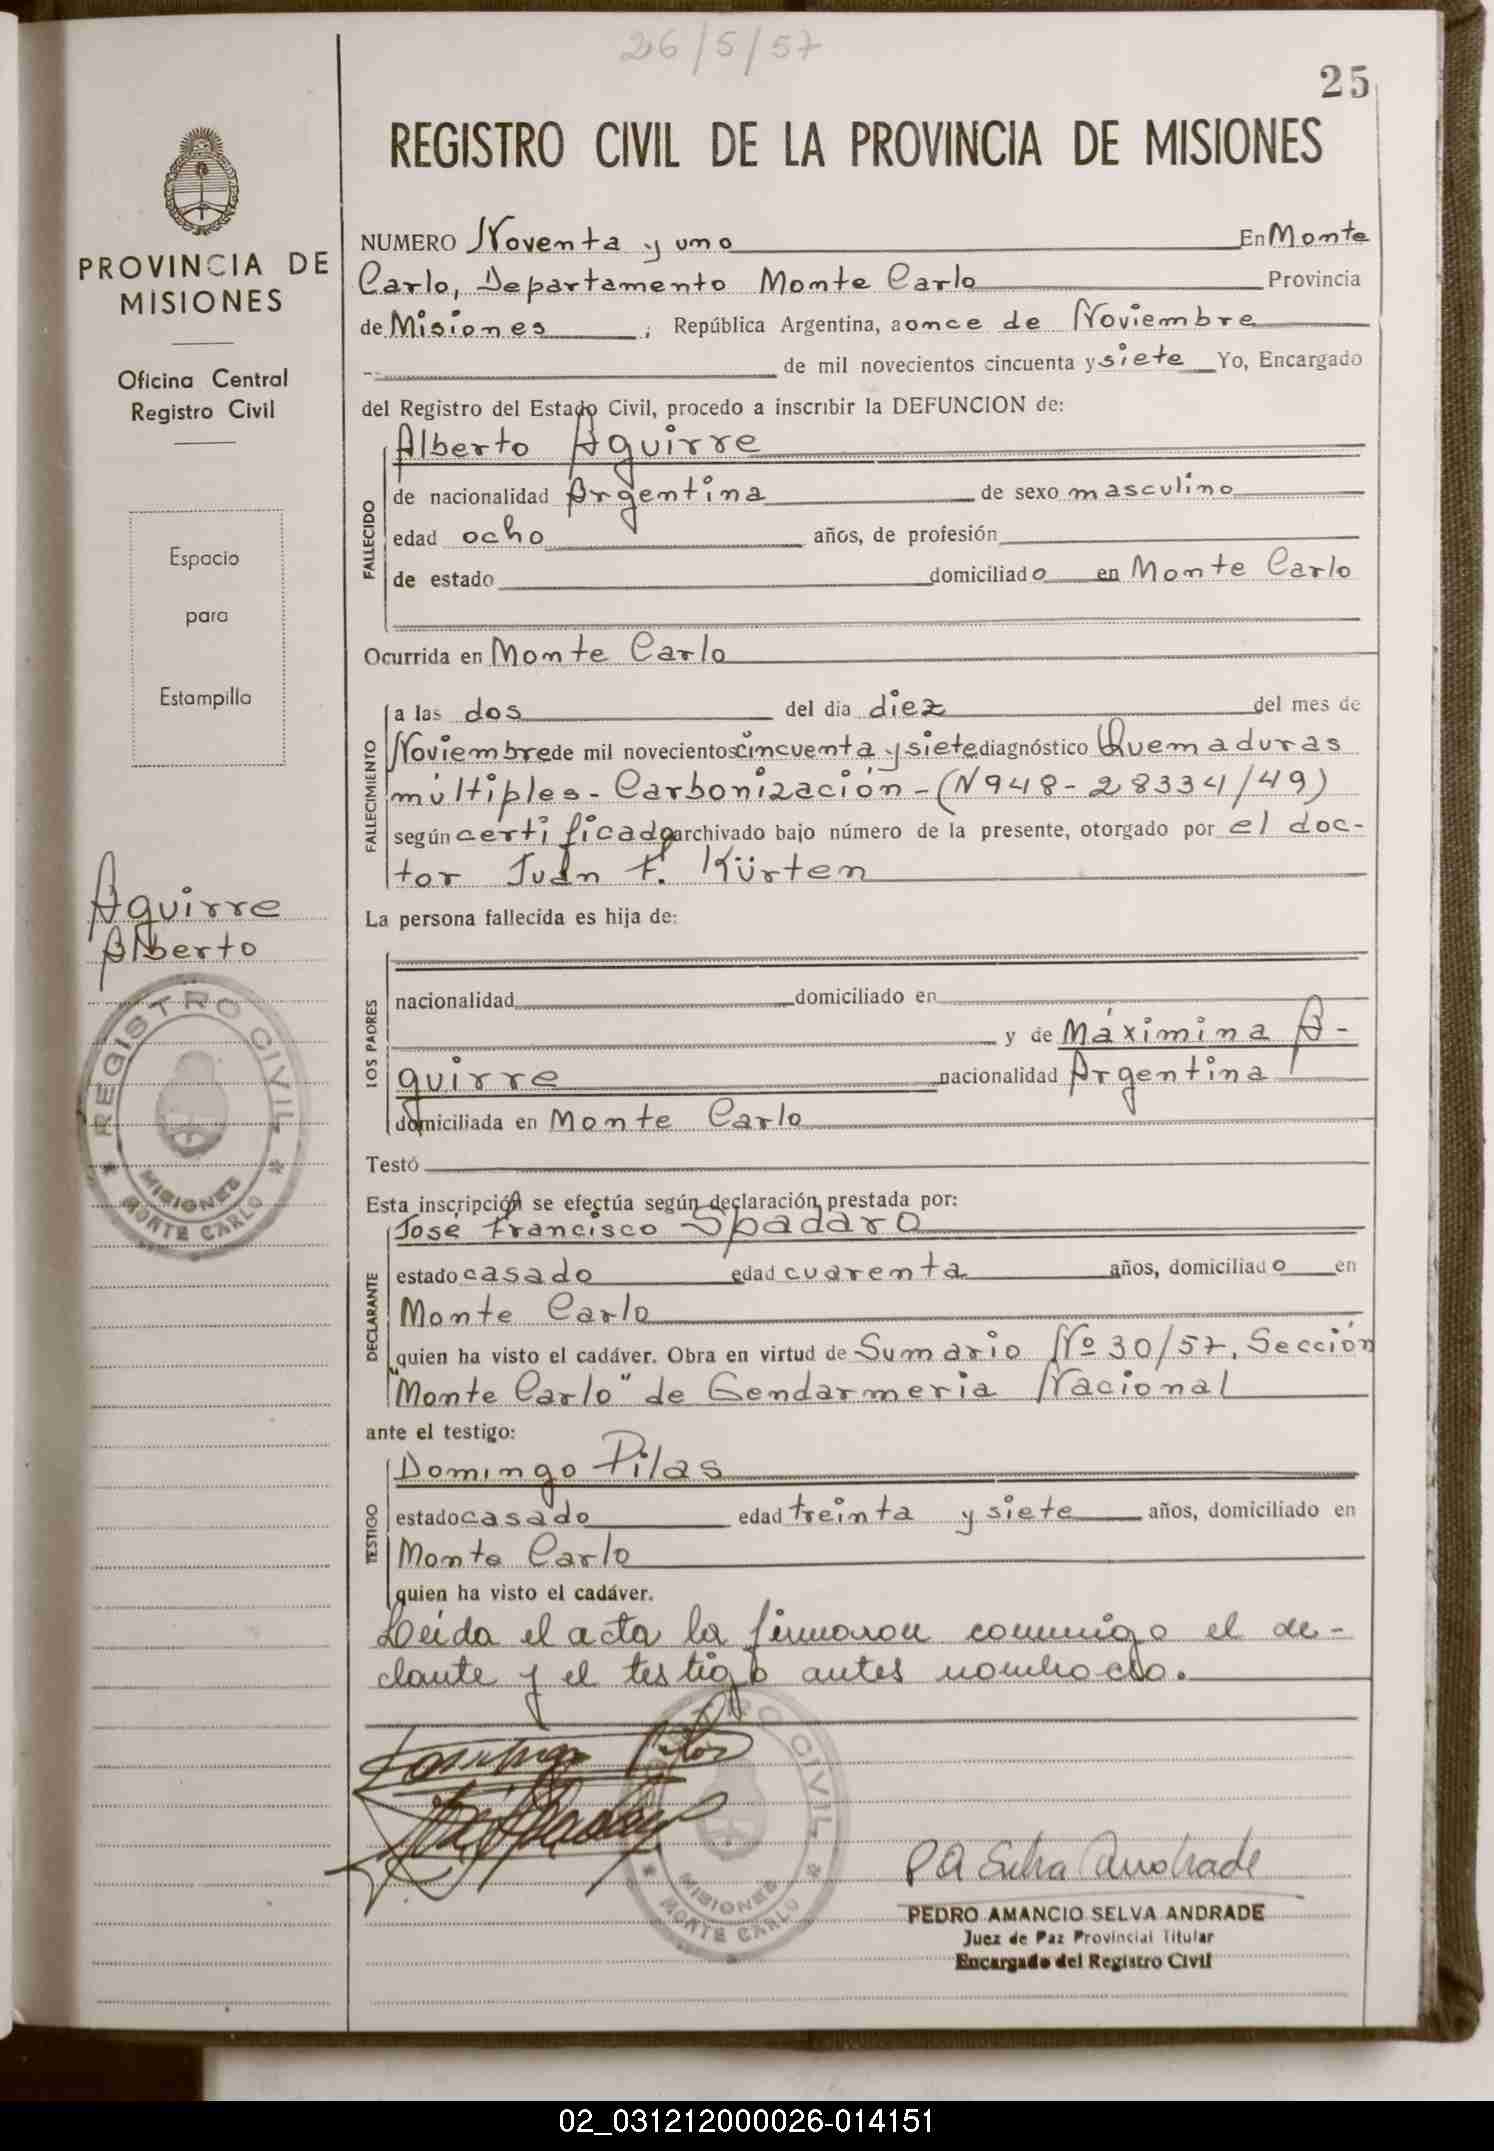 26/5/57
25
REGISTRO CIVIL DE LA PROVINCIA DE MISIONES
PROVINCIA DE
MISIONES
Oficina Central
Registro Civil
Espacio
para
Estampilla
Aguirre
Alberto
REGISTRO CIVIL
MISIONES
MONTE CARLO
NUMERO Noventa y uno En Monte
Carlo, Departamento Monte Carlo Provincia
de Misiones ; República Argentina, a once de Noviembre
de mil novecientos cincuenta y siete Yo, Encargado
del Registro del Estado Civil, procedo a inscribir la DEFUNCION de:
FALLECIDO
Alberto Aguirre
de nacionalidad Argentina de sexo masculino
edad ocho años, de profesión
de estado domiciliado en Monte Carlo
Ocurrida en Monte Carlo
FALLECIMIENTO
a las dos del día diez del mes de
Noviembre de mil novecientos cincuenta y siete diagnóstico Quemaduras
múltiples - Carbonización - (N948-28334/49)
según certificado archivado bajo número de la presente, otorgado por el doc-
tor Juan F. Kürten
La persona fallecida es hija de:
LOS PADRES
nacionalidad domiciliado en
y de Máximina A-
guirre nacionalidad Argentina
domiciliada en Monte Carlo
Testó
Esta inscripción se efectúa según declaración prestada por:
DECLARANTE
José Francisco Spadaro
estado casado edad cuarenta años, domiciliado en
Monte Carlo
quien ha visto el cadáver. Obra en virtud de Sumario Nº 30/57, Sección
"Monte Carlo" de Gendarmeria Nacional
ante el testigo:
TESTIGO
Domingo Pilas
estado casado edad treinta y siete años, domiciliado en
Monte Carlo
quien ha visto el cadáver.
Leída el acta la firmaron conmigo el de-
clante y el testigo antes nombrado.
REGISTRO CIVIL
MISIONES
MONTE CARLO
P A Selva Andrade
PEDRO AMANCIO SELVA ANDRADE
Juez de Paz Provincial Titular
Encargado del Registro Civil
02_031212000026-014151